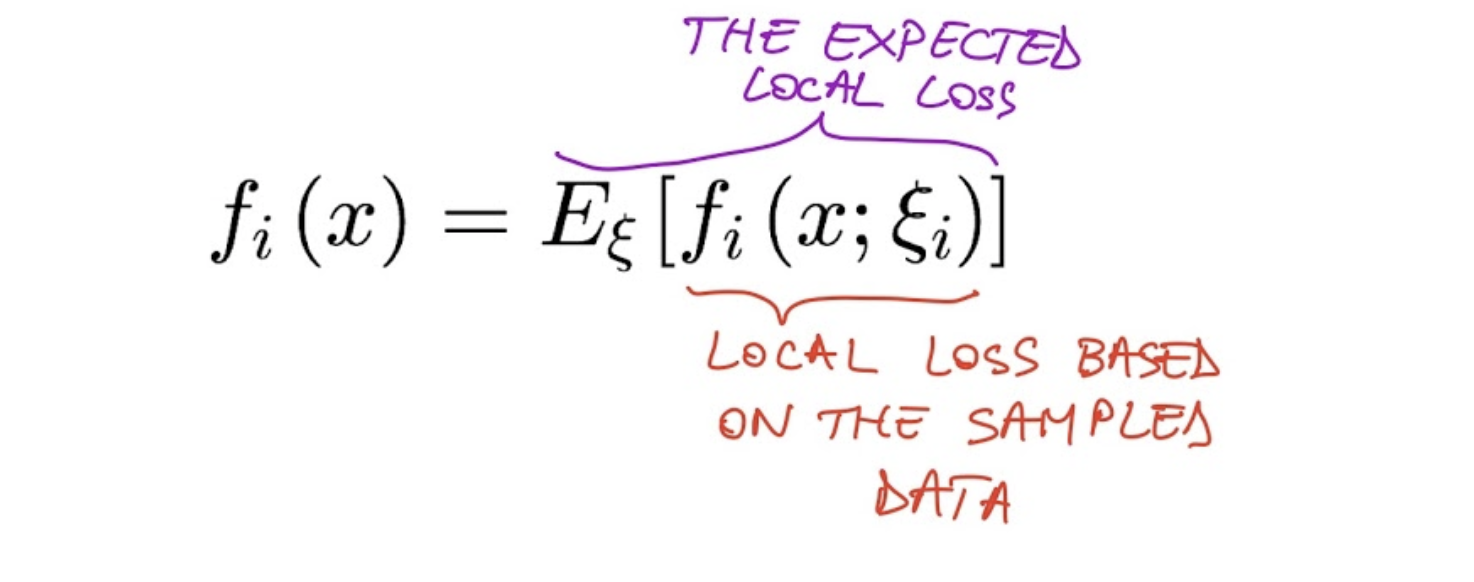 THE EXPECTED
LOCAL LOSS
fᵢ(x) = E_ξ[fᵢ(x; ξᵢ)]
LOCAL LOSS BASED
ON THE SAMPLED
DATA